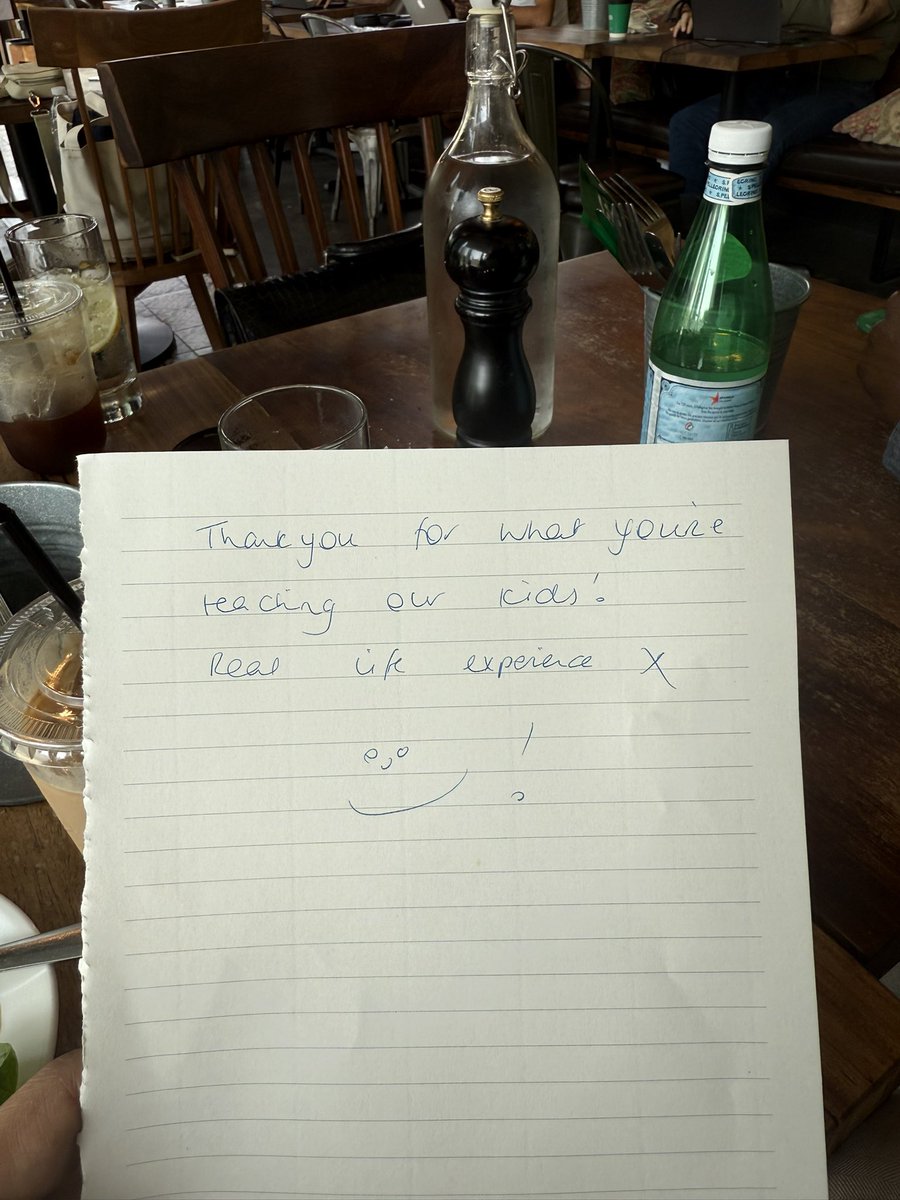 Thankyou for what you're
teaching our kids!
Real life experience X
!
S.PELLEGRINO